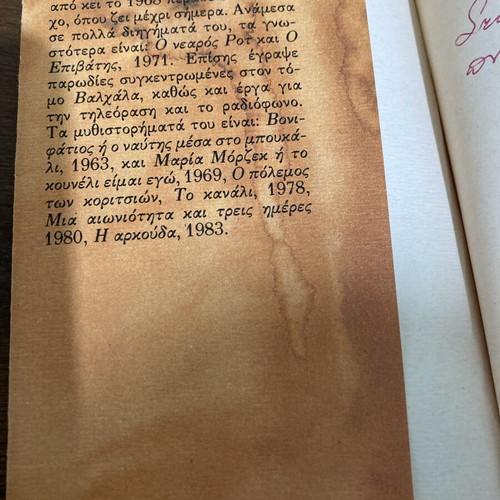 από κει το 1968
χο, όπου ζει μέχρι σήμερα. Ανάμεσα
σε πολλά διηγήματά του, τα γνω-
στότερα είναι: Ο νεαρός Ροτ και Ο
Επιβάτης, 1971. Επίσης έγραψε
παρωδίες συγκεντρωμένες στον τό-
μο Βαλχάλα, καθώς και έργα για
την τηλεόραση και το ραδιόφωνο.
Τα μυθιστορήματά του είναι: Βονι-
φάτιος ή ο ναύτης μέσα στο μπουκά-
λι, 1963, και Μαρία Μόρζεκ ή το
κουνέλι είμαι εγώ, 1969, Ο πόλεμος
των κοριτσιών, Το κανάλι, 1978,
Μια αιωνιότητα και τρεις ημέρες
1980, Η αρκούδα, 1983.